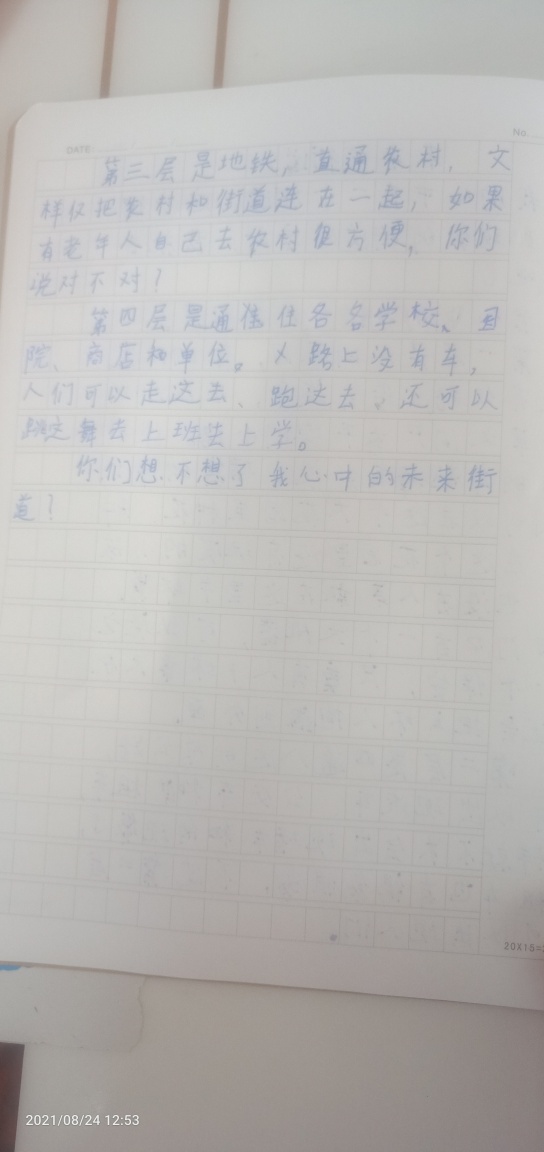 DATE:
No.
第三层是地铁，直通农村，文
样仅把农村和街道连在一起，如果
有老年人自己去农村很方便，你们
说对不对？
第四层是通往各各学校、
院、商店和单位。路上没有车，
人们可以走这去、跑这去、还可以
跳这舞去上班去上学。
你们想不想了我心中的未来街
道？
20X15=
2021/08/24 12:53